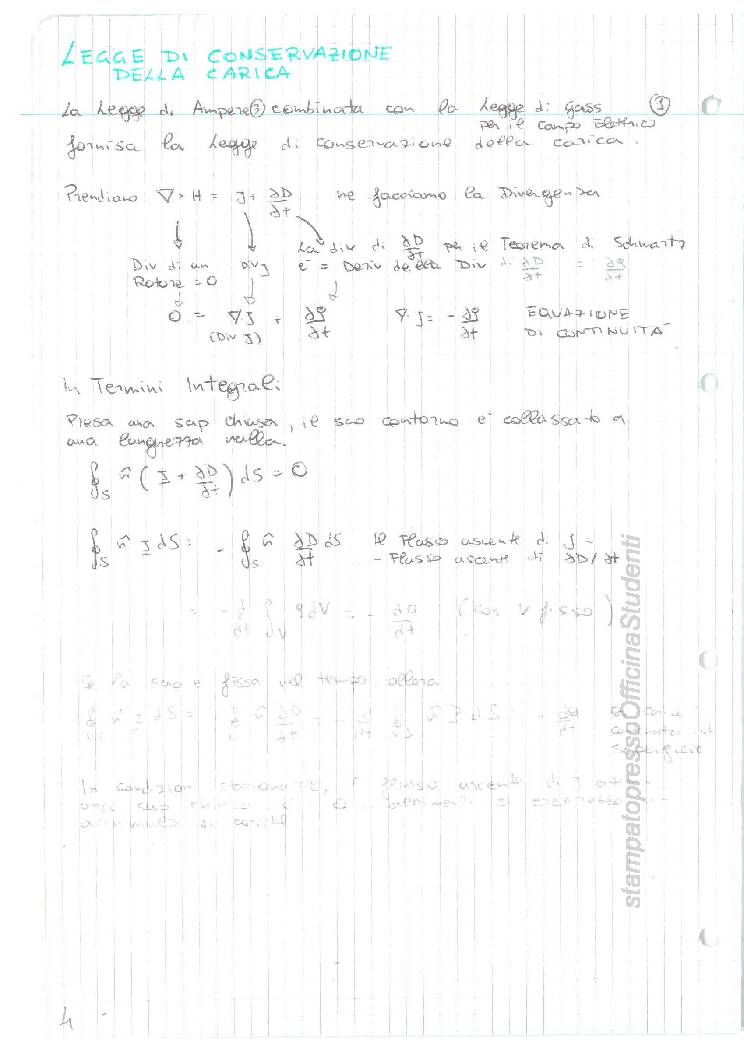 LEGGE DI CONSERVAZIONE
DELLA CARICA
La Legge di Ampere ③ combinata con la Legge di gass ①
per il campo Elettrico
fornisa la Legge di conservazione della carica.
Prendiamo ∇×H = J+ ∂D/∂t ne facciamo la Divergenza
Div di un Rotore = 0
Div J
La div di ∂D/∂t per il Teorema di Schwartz
è = Deriv della Div di ∂D/∂t = ∂ρ/∂t
0 = ∇·J + ∂ρ/∂t ∇·J = - ∂ρ/∂t EQUAZIONE
(Div J) DI CONTINUITÀ
in Termini Integrali:
Presa una sup chiusa, il suo contorno e' collassato a
una lunghezza nulla.
∮S n̂ (J + ∂D/∂t) dS = 0
∮S n̂ J dS = - ∮S n̂ ∂D/∂t dS Il Flusso uscente di J =
- Flusso uscente di ∂D/∂t
= - ∂/∂t ∫V ρ dV = - ∂Q/∂t (con V fisso)
Se la sup e' fissa nel tempo allora
In condizioni stazionarie, il flusso uscente di J
una sup
stampatopressoOfficinaStudenti
4